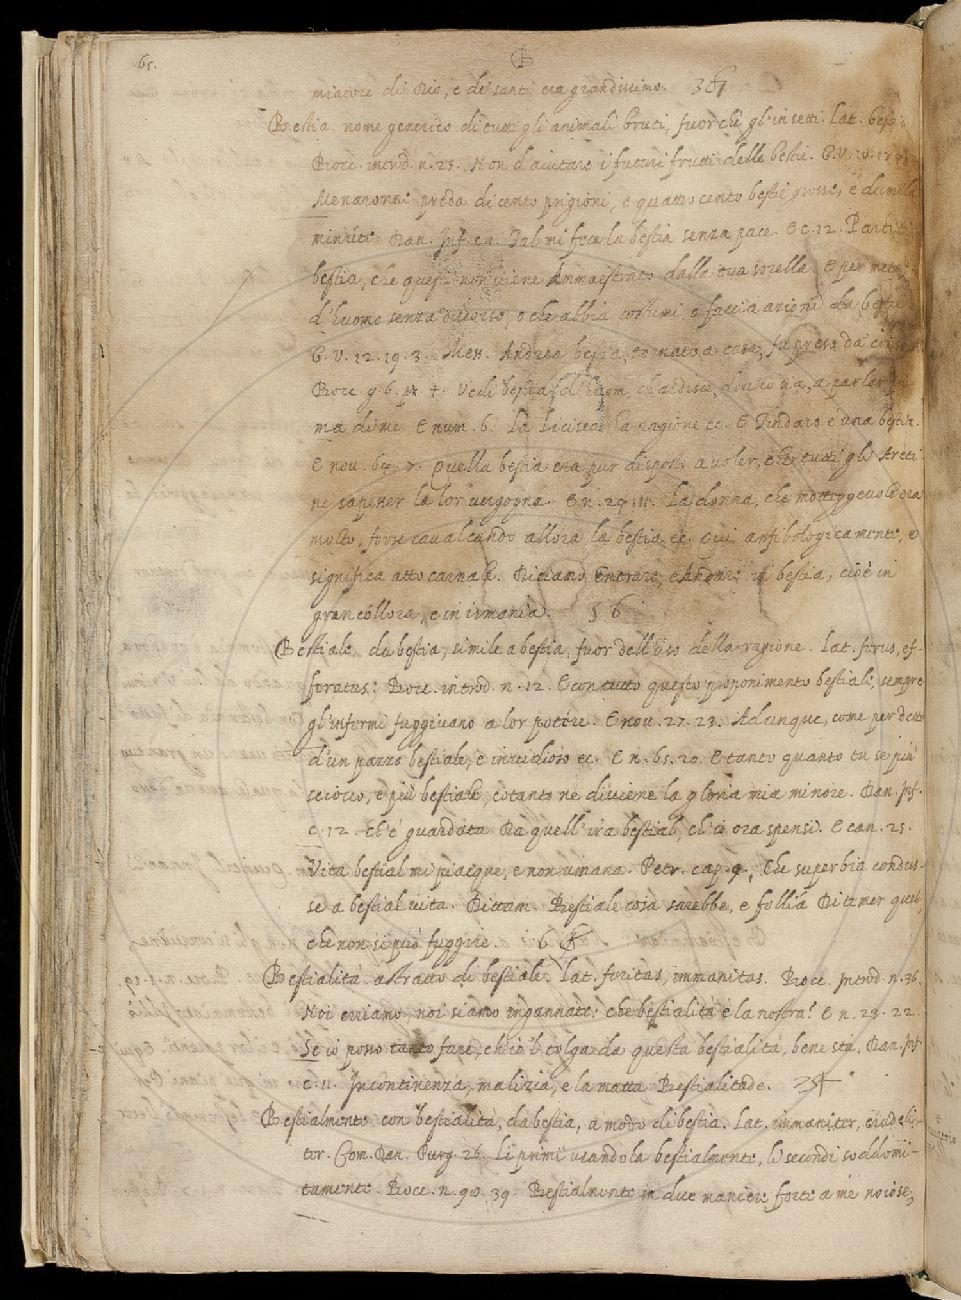 65.
B
miatore di Dio, e de' santi era grandissimo.
Bestia nome generico di tutti gli animali bruti, fuor che gl'insetti. Lat. bestia
Bocc. introd. n. 25. Non d'aiutare i futuri frutti delle bestie. G.V.
Menaronne preda di cento prigioni, e quattro cento bestie grosse, e dumila
minute. Dan. Inf. c. 1. Tal mi fece la bestia senza pace. E c. 12. Partiti
bestia, che questi non viene Ammaestrato dalla tua sorella. E per metaf.
d'huomo senza discorso, o che abbia costumi, o faccia azioni da bestia
G. V. 12. 19. 3. Mess. Andrea bestia, tornato a casa, fu preso da
Bocc. g. 6. p. 4. Vedi bestia d'huom, che ardisce, dove io sia, a parlar pri-
ma di me. E num. 6. La Licisca ha ragione ec. E Tindaro è una bestia.
E nov. 64. 7. Quella bestia era pur disposto a voler, che tutti gli Areti-
ni sapesser la lor vergogna. E n. 29. 11. La donna, che motteggevole era
molto, forse cavalcando allora la bestia ec. Qui anfibologicamente, e
significa atto carnale. Diciamo Entrare, e Andare in bestia, cioè in
gran collora, e in ismania. 56
Bestiale da bestia, simile a bestia, fuor dell'uso della ragione. Lat. ferus, ef-
feratus. Bocc. introd. n. 12. E con tutto questo proponimento bestiale, sempre
gl'infermi fuggivano a lor potere. E nov. 27. 23. Adunque, come per detto
d'un pazzo bestiale, e invidioso ec. E n. 65. 20. E tanto quanto tu se più
sciocco, e più bestiale, cotanto ne diviene la gloria mia minore. Dan. Inf.
c. 12. ch'è guardata Da quell'ira bestial, ch'i ora spensi. E can. 25.
Vita bestial mi piacque, e non umana. Petr. cap. 9. Che superbia condus-
se a bestial vita. Dittam. Bestiale cosa sarebbe, e follia Di temer quel,
che non si può fuggire. 16
Bestialità astratto di bestiale. Lat. feritas, immanitas. Bocc. introd. n. 36.
Noi erriamo, noi siamo ingannate: che bestialità è la nostra? E n. 23. 22.
Se io posso tanto fare, ch'io 'l tolga da questa bestialità, bene sta. Dan. Inf.
c. 11. Incontinenza, malizia, e la matta Bestialitade.
Bestialmente con bestialità, da bestia, a modo di bestia. Lat. immaniter, crudeli-
ter. Com. Dan. Purg. 26. Li primi usandola bestialmente, li secondi soddomi-
tamente. Bocc. n. 90. 39. Bestialmente in due maniere forte a me noiose,